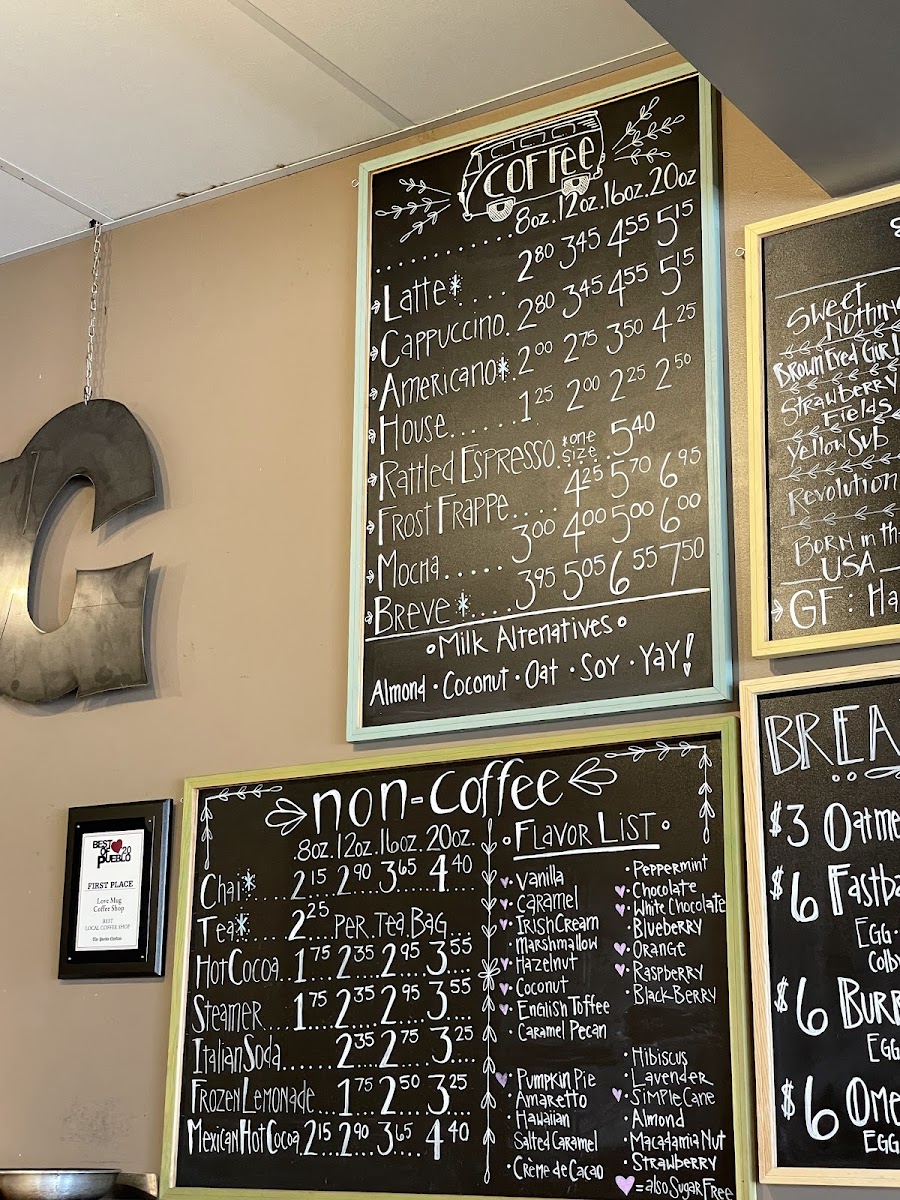 COFFEE
8oz. 12oz. 16oz. 20oz
Latte* .... 2.80 3.45 4.55 5.15
Cappuccino. 2.80 3.45 4.55 5.15
Americano*. 2.00 2.75 3.50 4.25
House...... 1.25 2.00 2.25 2.50
Rattled Espresso. *one size 5.40
Frost Frappe.... 4.25 5.70 6.95
Mocha..... 3.00 4.00 5.00 6.00
Breve*.... 3.95 5.05 6.55 7.50
•Milk Altenatives•
Almond • Coconut • Oat • Soy • Yay!
Sweet
Nothin
Brown Eyed Girl
Strawberry
Fields
Yellow Sub
Revolution
Born in th
USA
GF: Ha
BEST OF PUEBLO '20
FIRST PLACE
Love Mug
Coffee Shop
BEST
LOCAL COFFEE SHOP
The Pueblo Chieftain
non-coffee
8oz. 12oz. 16oz. 20oz.
Chai* 2.15 2.90 3.65 4.40
Tea* 2.25 Per Tea Bag
Hot Cocoa.. 1.75 2.35 2.95 3.55
Steamer.... 1.75 2.35 2.95 3.55
Italian Soda...... 2.35 2.75 3.25
Frozen Lemonade 1.75 2.50 3.25
Mexican Hot Cocoa 2.15 2.90 3.65 4.40
•Flavor List•
• Vanilla
• Caramel
• Irish Cream
• Marshmallow
• Hazelnut
• Coconut
• English Toffee
• Caramel Pecan
• Pumpkin Pie
• Amaretto
• Hawaiian
Salted Caramel
• Crème de Cacao
• Peppermint
• Chocolate
• White Chocolate
• Blueberry
• Orange
• Raspberry
• BlackBerry
• Hibiscus
• Lavender
• Simple Cane
• Almond
• Macadamia Nut
• Strawberry
= also Sugar Free
BREA
$3 Oatme
$6 Fastba
Egg •
Colby
$6 Burr
Egg
$6 Ome
Egg